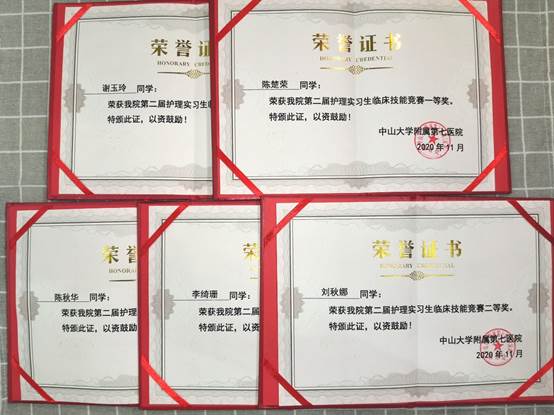 荣誉证
HONORARY CREDEN
谢玉玲 同学：
荣获我院第二届护理实习生
特颁此证，以资鼓励！
荣誉证书
HONORARY CREDENTIAL
陈楚荣 同学：
荣获我院第二届护理实习生临床技能竞赛一等奖。
特颁此证，以资鼓励！
中山大学附属第七医院
2020年11月
荣誉
HONORAR
陈秋华 同学：
荣获我院第二届
特颁此证，以资
李绮珊 同学：
荣获我院第二届护
特颁此证，以资鼓
荣誉证书
HONORARY CREDENTIAL
刘秋娜 同学：
荣获我院第二届护理实习生临床技能竞赛二等奖。
特颁此证，以资鼓励！
中山大学附属第七医院
2020年11月